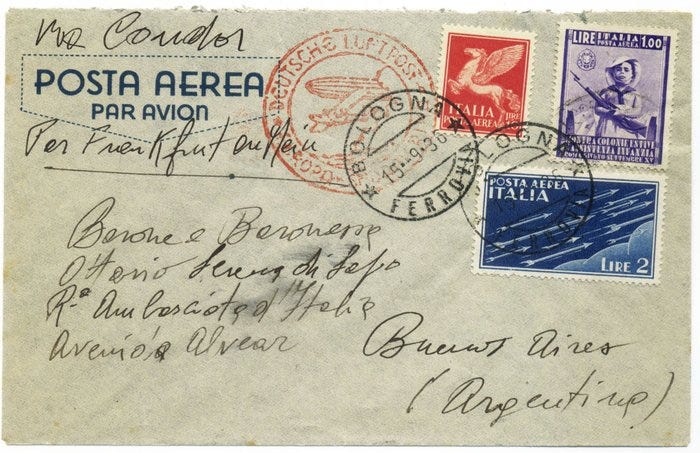 via Condor
POSTA AEREA
PAR AVION
Per Frankfurt am Main
DEUTSCHE LUFTPOST
EUROPA
BOLOGNA
15-9-36
FERROVIA
ITALIA
POSTA AEREA LIRE
LIRE ITALIA 1.00
POSTA AEREA
MOSTRA COLONIE ESTIVE
E ASSISTENZA INFANZIA
POSTA AEREA
ITALIA
LIRE 2
OLOGNA
FERROVIA
Barone e Baronessa
Ottavio Serena di Lapo
R.a Ambasciata d'Italia
Avenida Alvear
Buenos Aires
(Argentina)